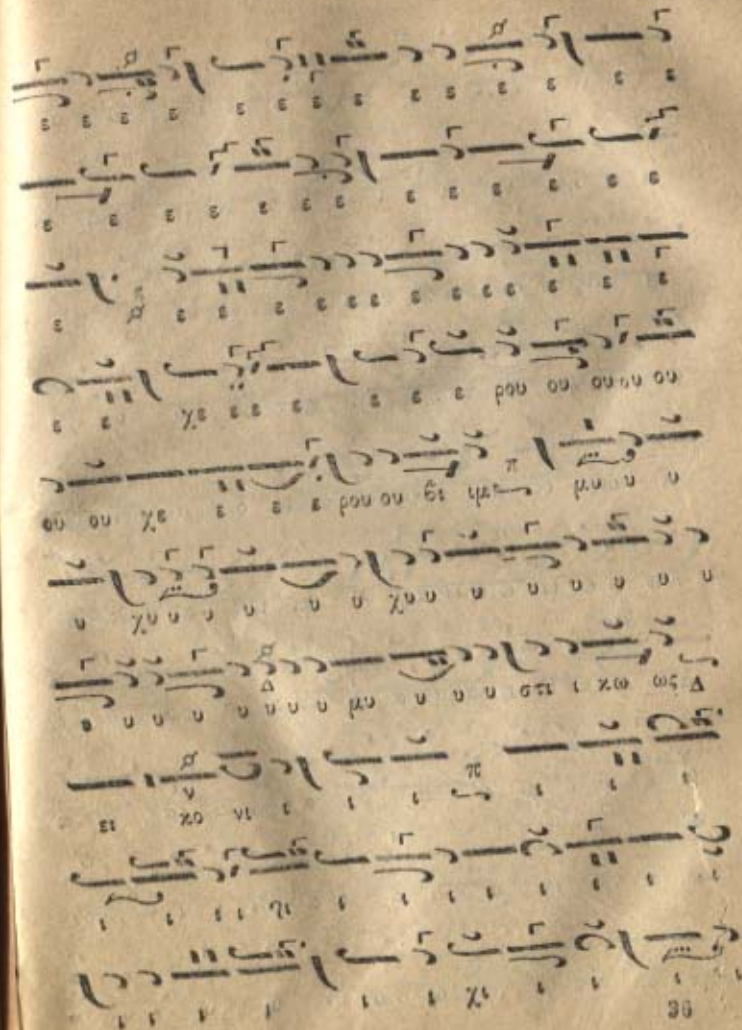 ε ε ε ε ε ε ε ε ε ε ε ε ε ε
ε ε ε ε ε ε ε ε ε ε ε ε ε
ε ε ε ε ε ε ε ε ε ε ε ε ε ε ε
ε ε χε ε ε ε ε ε ε ρου ου ου ου ου
ου ου χε ε ε ε ρου ου βι ιμ π μυ υ υ υ
υ χυ υ υ υ υ υ χυ υ υ υ υ υ υ υ
υ υ υ υ υ υ υ μυ υ υ υ στι ι κω ως Δ
ει κο νι ι ι ι π ι ι ι
ι ι ι ι ι ι ι ι ι ι ι ι
ι ι ι ι ι ι ι χι ι ι ι ι
36